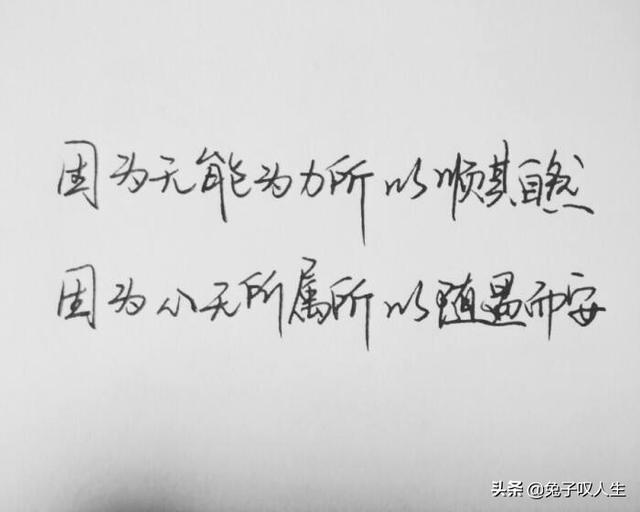 因为无能为力所以顺其自然
因为心无所属所以随遇而安
头条 @兔子叹人生